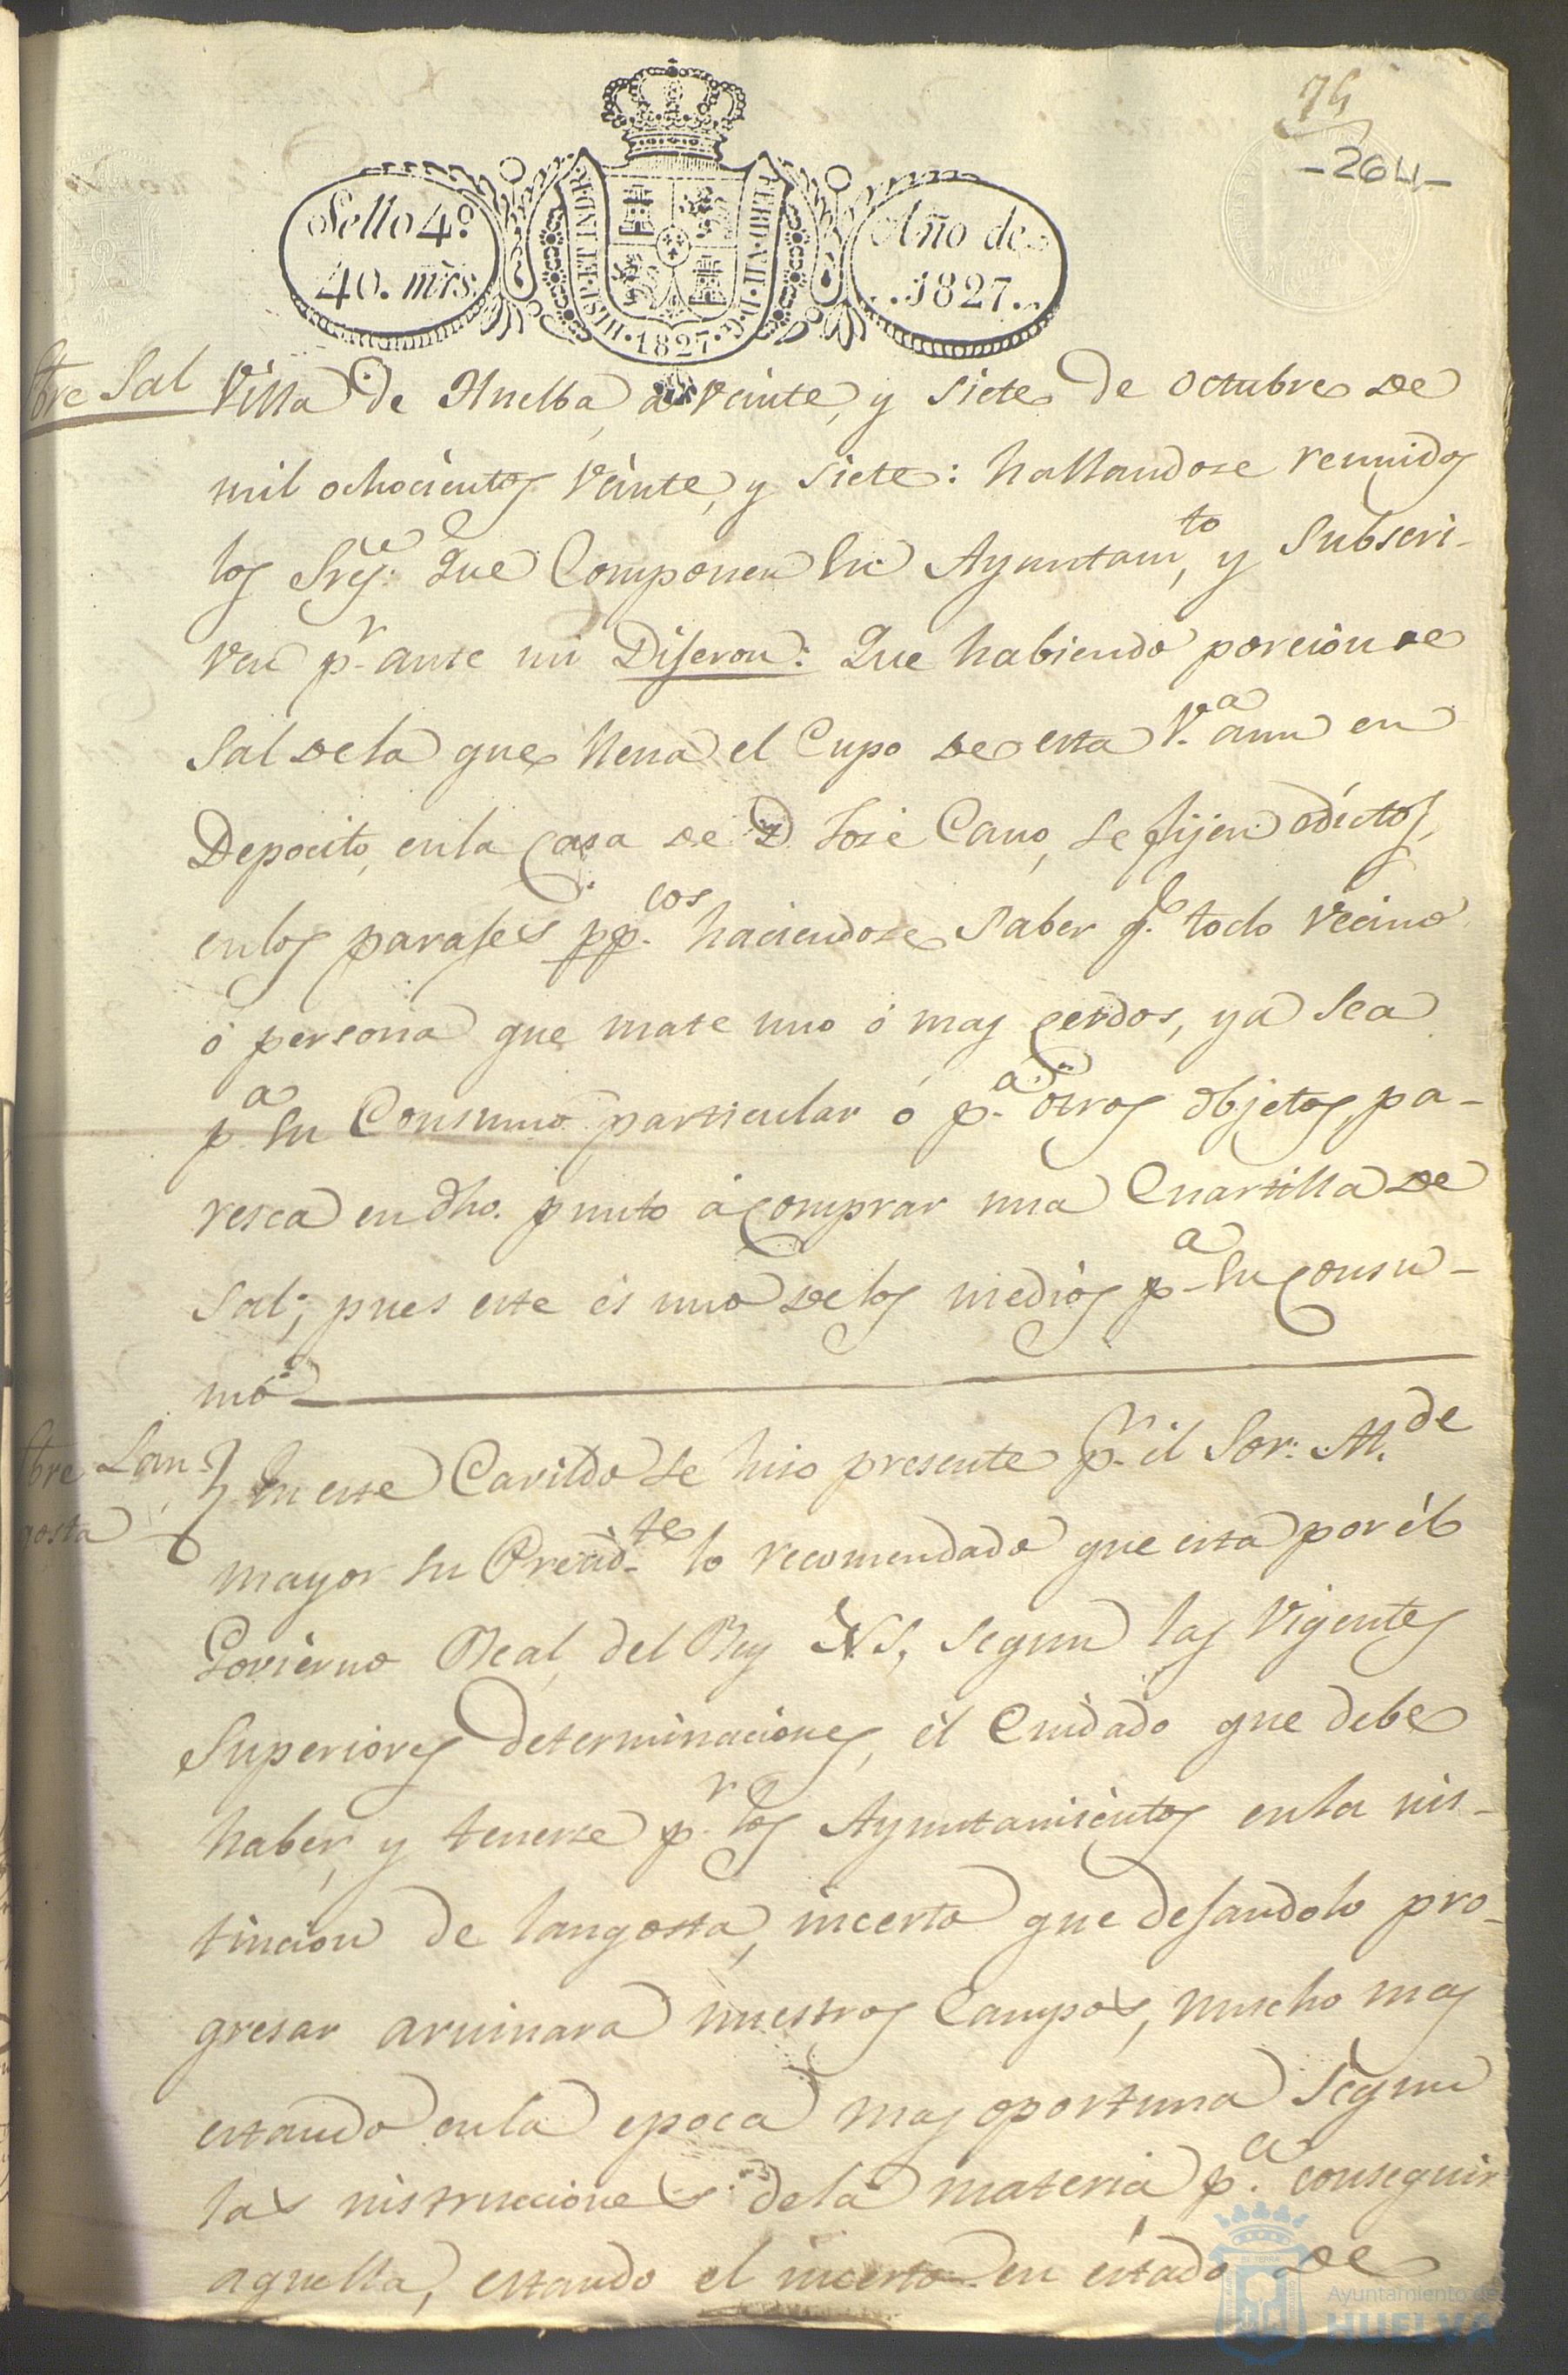 75
-264-
Sello 4º
40. mrs.
HISP. ET IND. R.
FERD. VII. D. G.
1827
Año de
..1827..
bre Sal
Villa de Huelba, a veinte, y siete de octubre de
mil ochocientos veinte, y siete: hallandose reunidos
los Sres. que Componen su Ayuntamto, y subscri-
ven pr ante mi Dijeron: Que habiendo porcion de
Sal de la que llena el Cupo de esta V.a aun en
Depocito, en la Casa de D José Cano, se fijen edictos,
en los parajes ppcos haciendose saber qe. todo vecino
ó persona que mate uno ó mas cerdos, ya sea
pa su Consumo particular ó pa otros objetos, pa-
resca en dho. punto á comprar una Cuartilla de
Sal; pues este és uno de los medios pa su consu-
mo
bre Lan-
gosta
En este Cavildo se hiso presente pr él Sor. Al.de
mayor su Presidte lo recomendado que esta por él
Govierno Real, del Rey N S, segun las vigentes
Superiores determinaciones, él Cuidado que debe
haber, y tenerse pr los Ayuntamientos en la ins-
tincion de langosta, incerto que dejandolo pro-
gresar aruinara nuestros Campos, mucho mas
estando en la epoca mas oportuna segun
las instrucciones de la materia, pa. conseguir
aquella, estando el incerto en éstado de
Ayuntamiento de
HUELVA